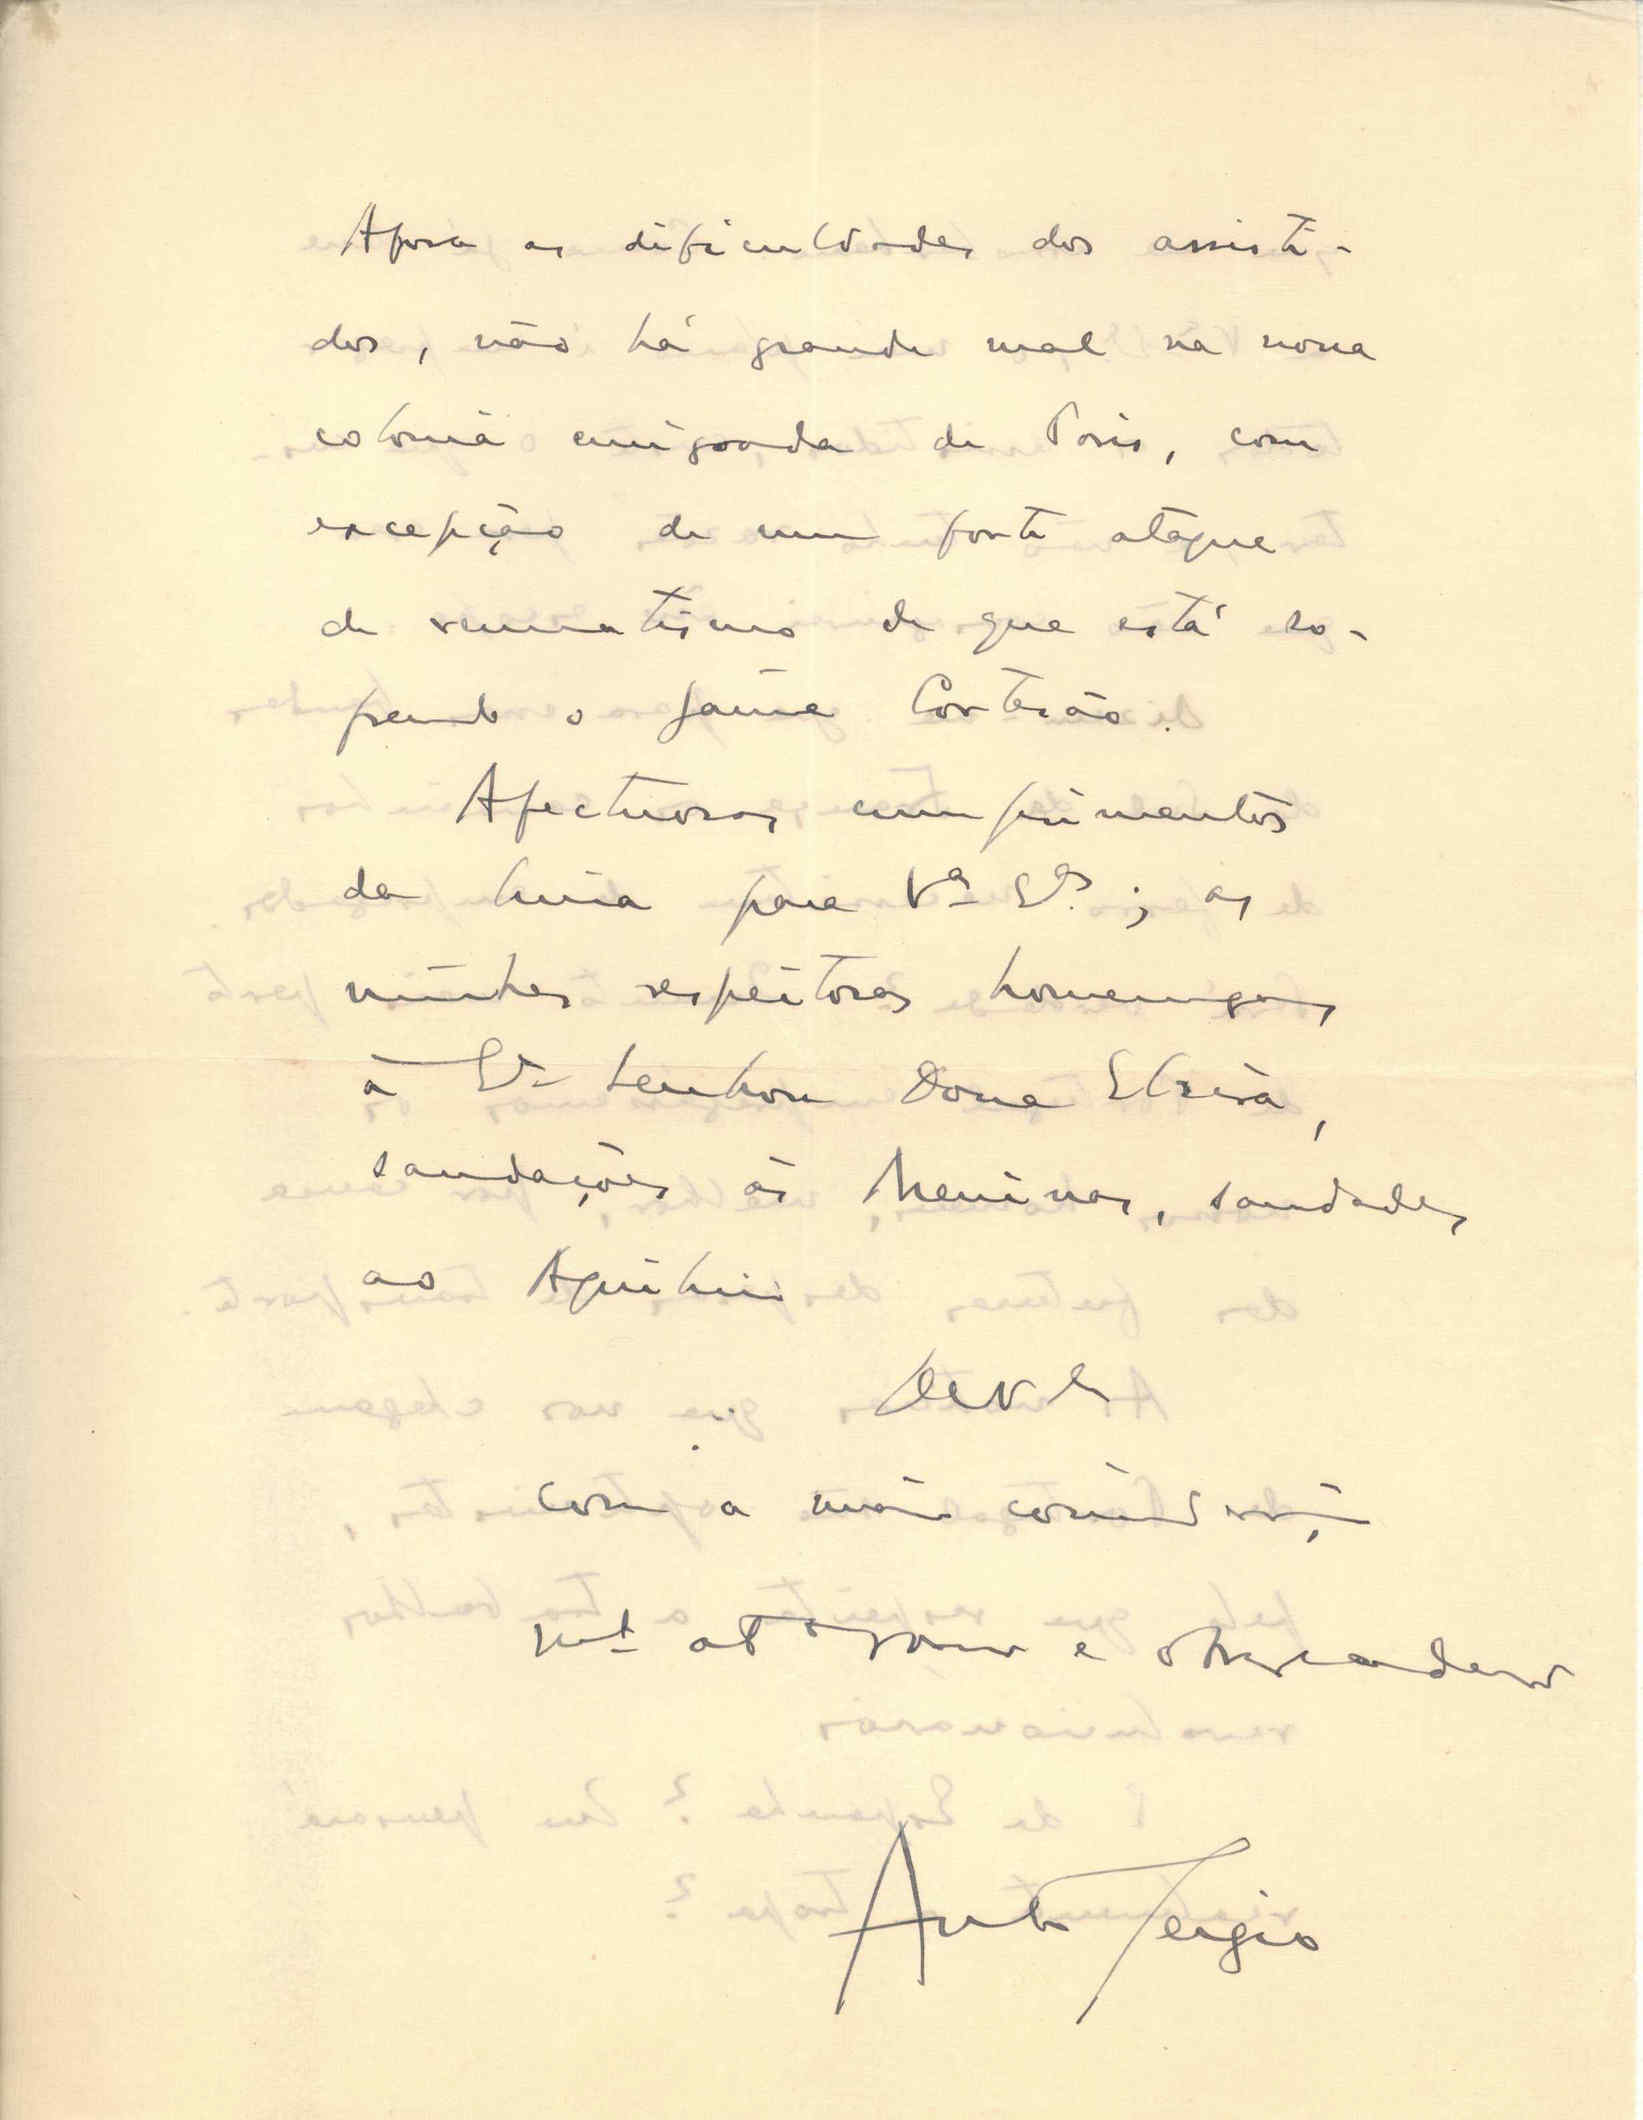 Afora as dificuldades dos assisti-
dos, não há grande mal na nossa
colonia emigrada de Paris, com
excepção de um forte ataque
de reumatismo de que está so-
frendo o Jaime Cortesão.
Afectuosos cumprimentos
da Luisa para V.as Ex.as; as
minhas respeitosas homenagens
à Ex.ma Senhora Dona Elzira,
saudações às Meninas, saudades
ao Aquilino
De V. Ex.
com a maior consideração
m.to at.o e obrigado
Antº Sergio